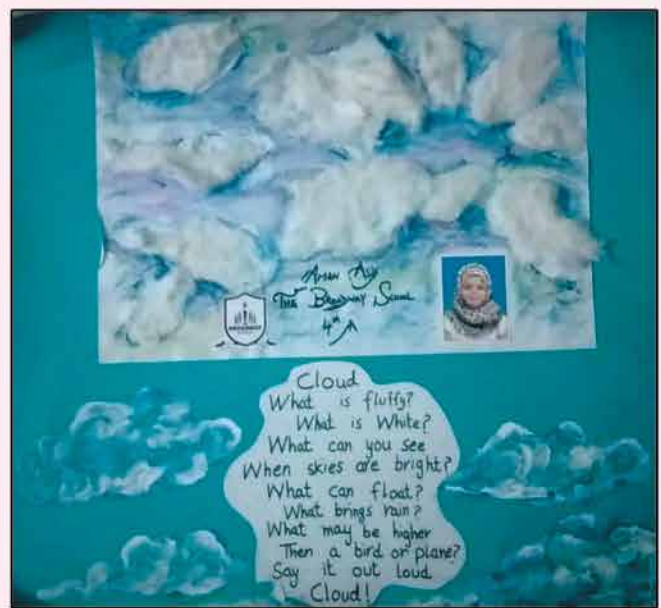 Aman Aly
The Broadway School
4th A
Cloud
What is fluffy?
What is White?
What can you see
When skies are bright?
What can float?
What brings rain?
What may be higher
Then a bird or plane?
Say it out loud
Cloud!